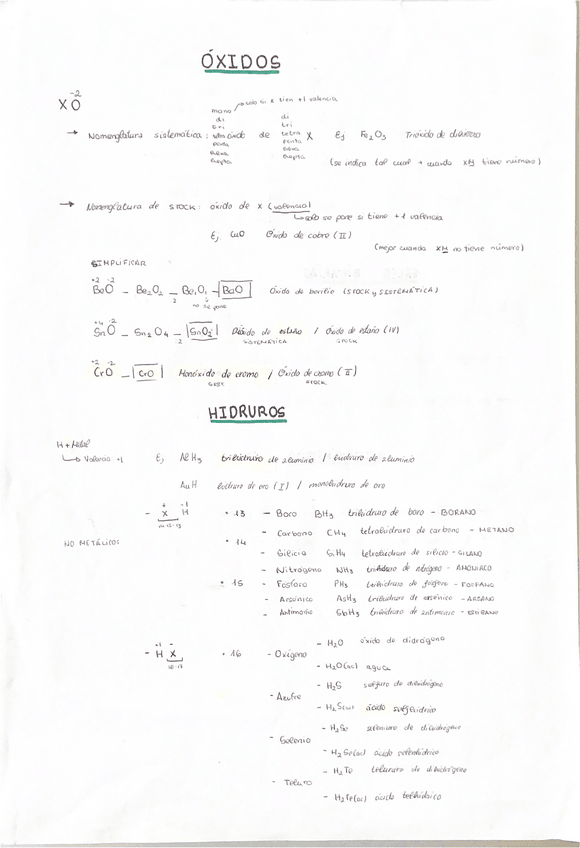 ÓXIDOS
-2
X O
mono → solo si X tien +1 valencia
di di
tri tri
→ Nomenglatura sistemática: óxido de tetra X Ej Fe2O3 Trióxido de dihierro
penta penta
hexa hexa
hepta hepta
(se indica tal cual + cuando XM tiene número)
→ Nomenglatura de STOCK: óxido de X (valencia)
↳ solo se pone si tiene +1 valencia
Ej, CuO Óxido de cobre (II)
(mejor cuando XM no tiene número)
SIMPLIFICAR
+2 -2
BeO — Be2O2 — Be1O1 — BaO Óxido de berilio (STOCK y SISTEMÁTICA)
2 no se pone
+4 -2
SnO — Sn2O4 — SnO2 Dióxido de estaño / Óxido de estaño (IV)
2 SISTEMÁTICA STOCK
+2 -2
CrO — CrO Monóxido de cromo / Óxido de cromo (II)
SIST STOCK
HIDRUROS
H + Metal
↳ Valencia +1 Ej, AlH3 trihidruro de aluminio / hidruro de aluminio
AuH hidruro de oro (I) / monohidruro de oro
+ -1
- X H • 13 - Boro BH3 trihidruro de boro - BORANO
14-15-13
- Carbono CH4 tetrahidruro de carbono - METANO
NO METÁLICOS • 14
- Silicio SiH4 tetrahidruro de silicio - SILANO
- Nitrógeno NH3 trihidruro de nitrógeno - AMONIACO
• 15 - Fósforo PH3 trihidruro de fósforo - FOSFANO
- Arsénico AsH3 trihidruro de arsénico - ARSANO
- Antimonio SbH3 trihidruro de antimonio - ESTIBANO
+1 -
- H X • 16 - Oxígeno - H2O óxido de dihidrógeno
16-17
- H2O(ac) agua
- Azufre - H2S sulfuro de dihidrógeno
- H2S(ac) ácido sulfhídrico
- Selenio - H2Se seleniuro de dihidrógeno
- H2Se(ac) ácido selenhídrico
- Teluro - H2Te telururo de dihidrógeno
- H2Te(ac) ácido telhídrico